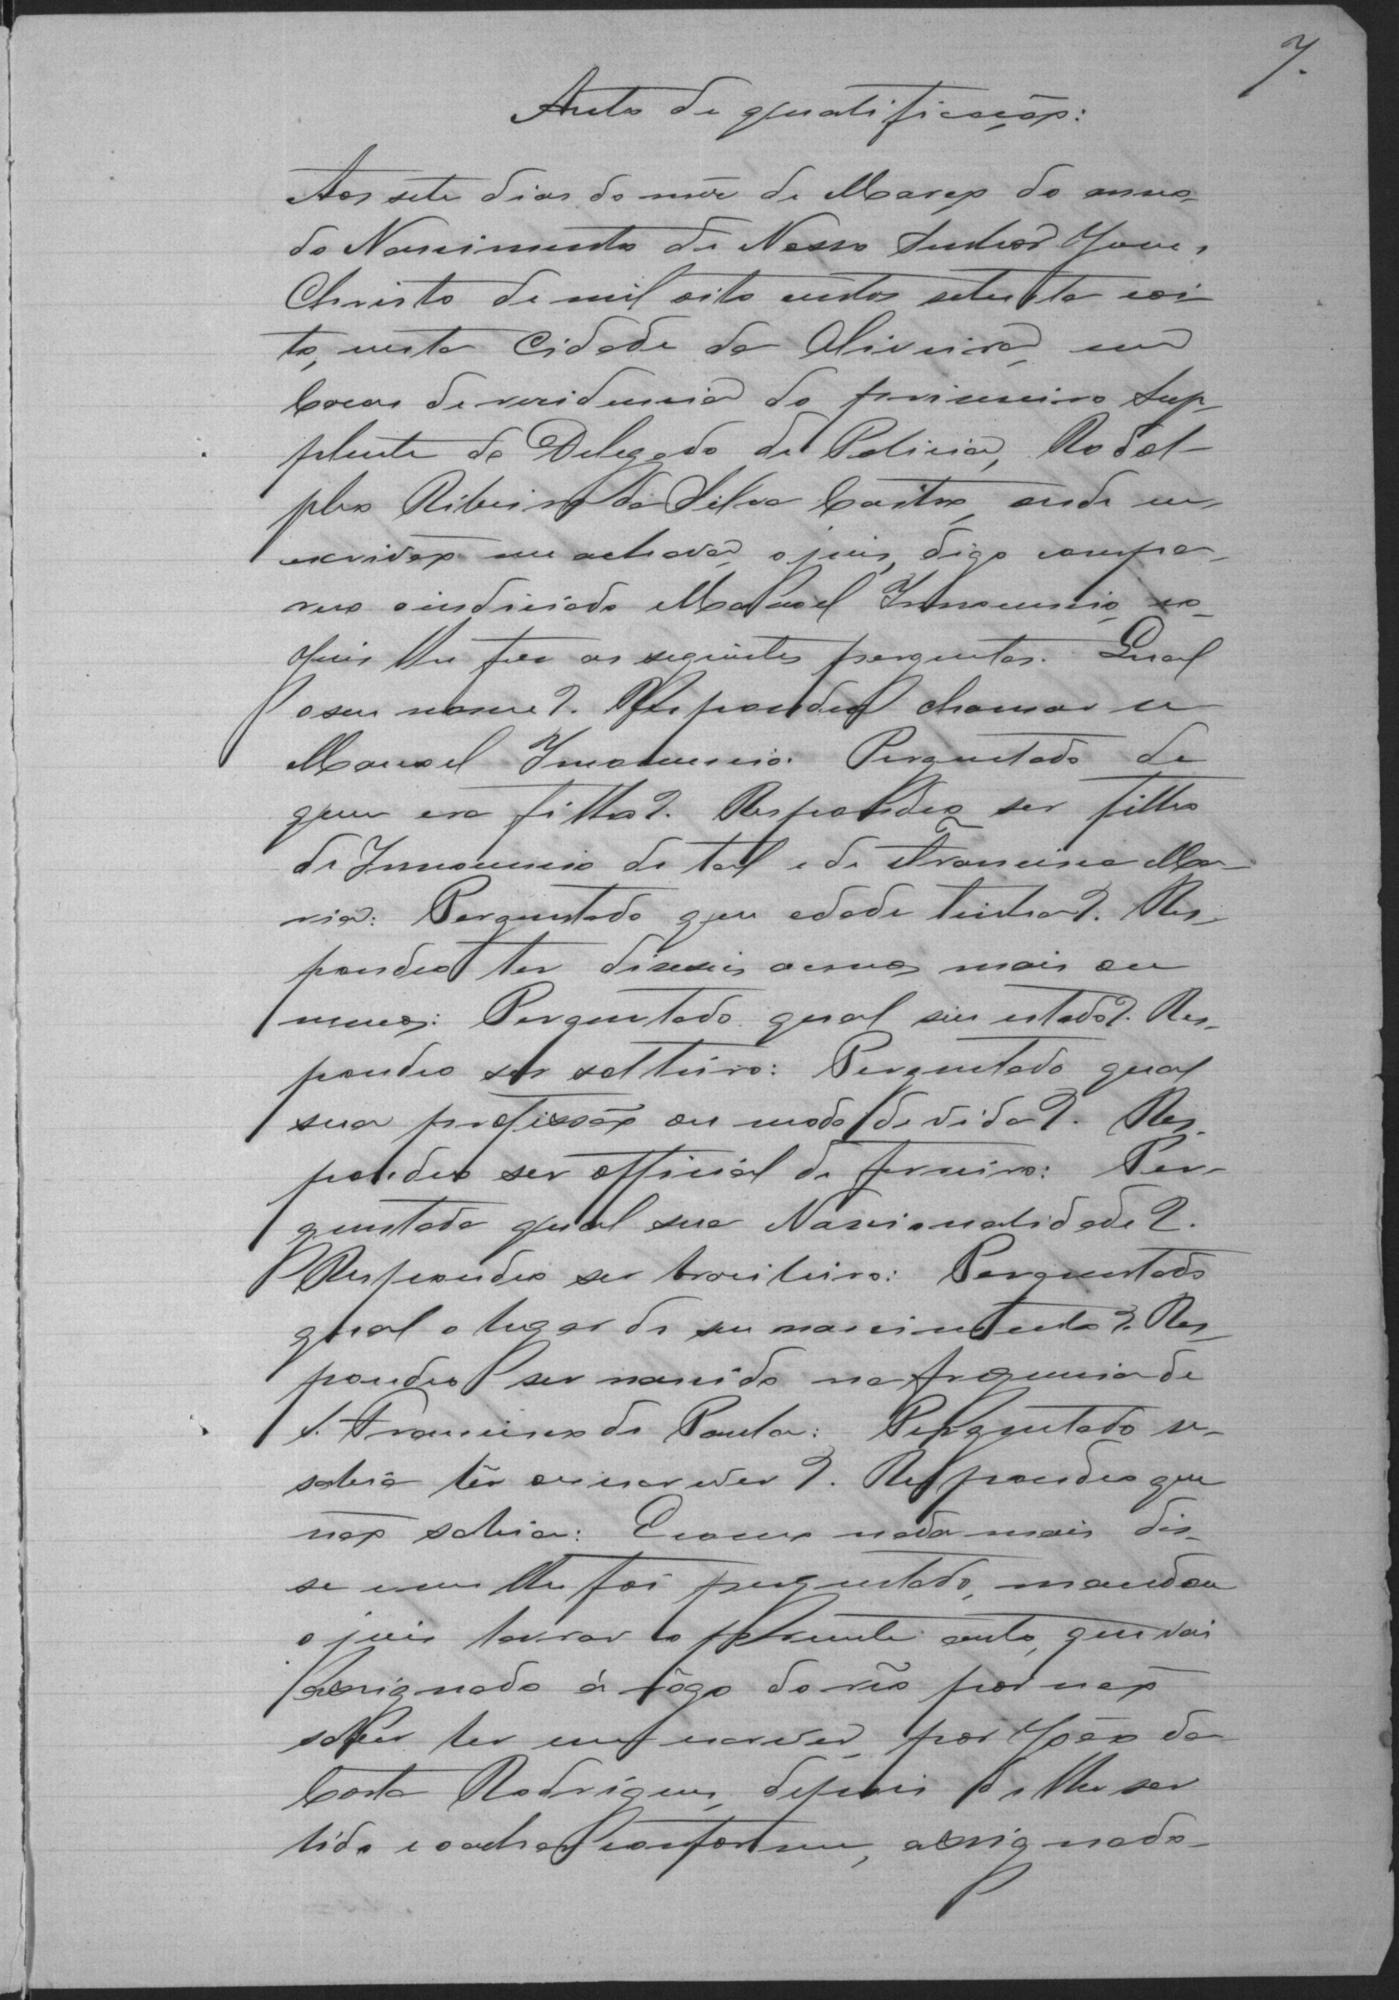 7.
Auto de qualificação:
Aos sete dias do mêz de Março do anno
do Nascimento de Nosso Senhor Jesus
Christo de mil oito centos setenta e oi-
to, nesta Cidade da Oliveira, em
Casas de residencia do primeiro Sup-
plente do Delegado de Policia, Rodol-
pho Ribeiro da Silva Castro, onde eu
escrivão me achava, o juis, digo compa-
receo o indiciado Manoel Innocencio, e o
juis lhe fez as seguintes perguntas. Qual
o seu nome?. Respondeo chamar se
Manoel Innocencio. Perguntado de
quem era filho?. Respondeo ser filho
de Innocencio de tal e de Francisca Ma-
ria: Perguntado que edade tinha?. Res-
pondeo ter deseseis annos mais ou
menos: Perguntado qual seu estado?. Res-
pondeo ser solteiro: Perguntado qual
sua profissão ou modo de vida?. Res-
pondeo ser official de ferreiro: Per-
guntado qual sua Nascionalidade?.
Respondeo ser brasileiro: Perguntado
qual o lugar de seu nascimento?. Res-
pondeo ser nascido na freguesia de
S. Francisco de Paula: Perguntado se
sabia lêr e escrever?. Respondeo que
não sabia: E como nada mais dis-
se e nem lhe foi perguntado, mandou
o juis lavrar o presente auto, que vai
assignado á rôgo do réo por não
saber ler nem escrever, por João da
Costa Rodrigues, depois de lhe ser
lido e o achar conforme, assignado